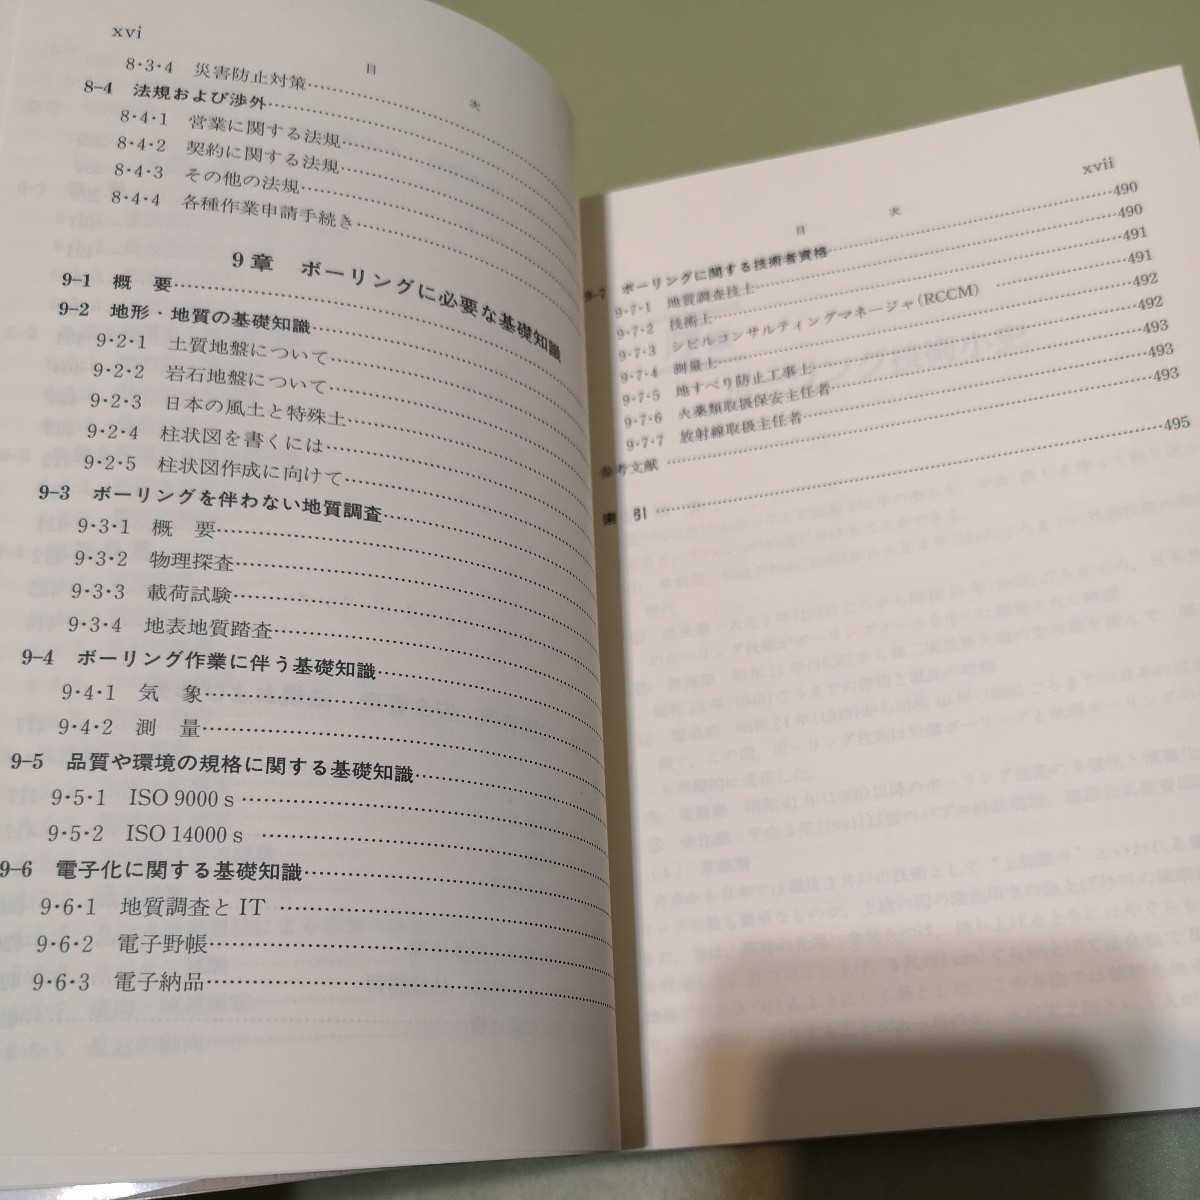 xvi
目 次
8・3・4 災害防止対策
8-4 法規および渉外
8・4・1 営業に関する法規
8・4・2 契約に関する法規
8・4・3 その他の法規
8・4・4 各種作業申請手続き
9章 ボーリングに必要な基礎知識
9-1 概 要
9-2 地形・地質の基礎知識
9・2・1 土質地盤について
9・2・2 岩石地盤について
9・2・3 日本の風土と特殊土
9・2・4 柱状図を書くには
9・2・5 柱状図作成に向けて
9-3 ボーリングを伴わない地質調査
9・3・1 概 要
9・3・2 物理探査
9・3・3 載荷試験
9・3・4 地表地質踏査
9-4 ボーリング作業に伴う基礎知識
9・4・1 気 象
9・4・2 測 量
9-5 品質や環境の規格に関する基礎知識
9・5・1 ISO 9000 s
9・5・2 ISO 14000 s
9-6 電子化に関する基礎知識
9・6・1 地質調査と IT
9・6・2 電子野帳
9・6・3 電子納品
xvii
目 次
9-7 ボーリングに関する技術者資格 490
9・7・1 地質調査技士 490
9・7・2 技術士 491
9・7・3 シビルコンサルティングマネージャ(RCCM) 491
9・7・4 測量士 492
9・7・5 地すべり防止工事士 492
9・7・6 火薬類取扱保安主任者 493
9・7・7 放射線取扱主任者 493
参考文献 493
索 引 495